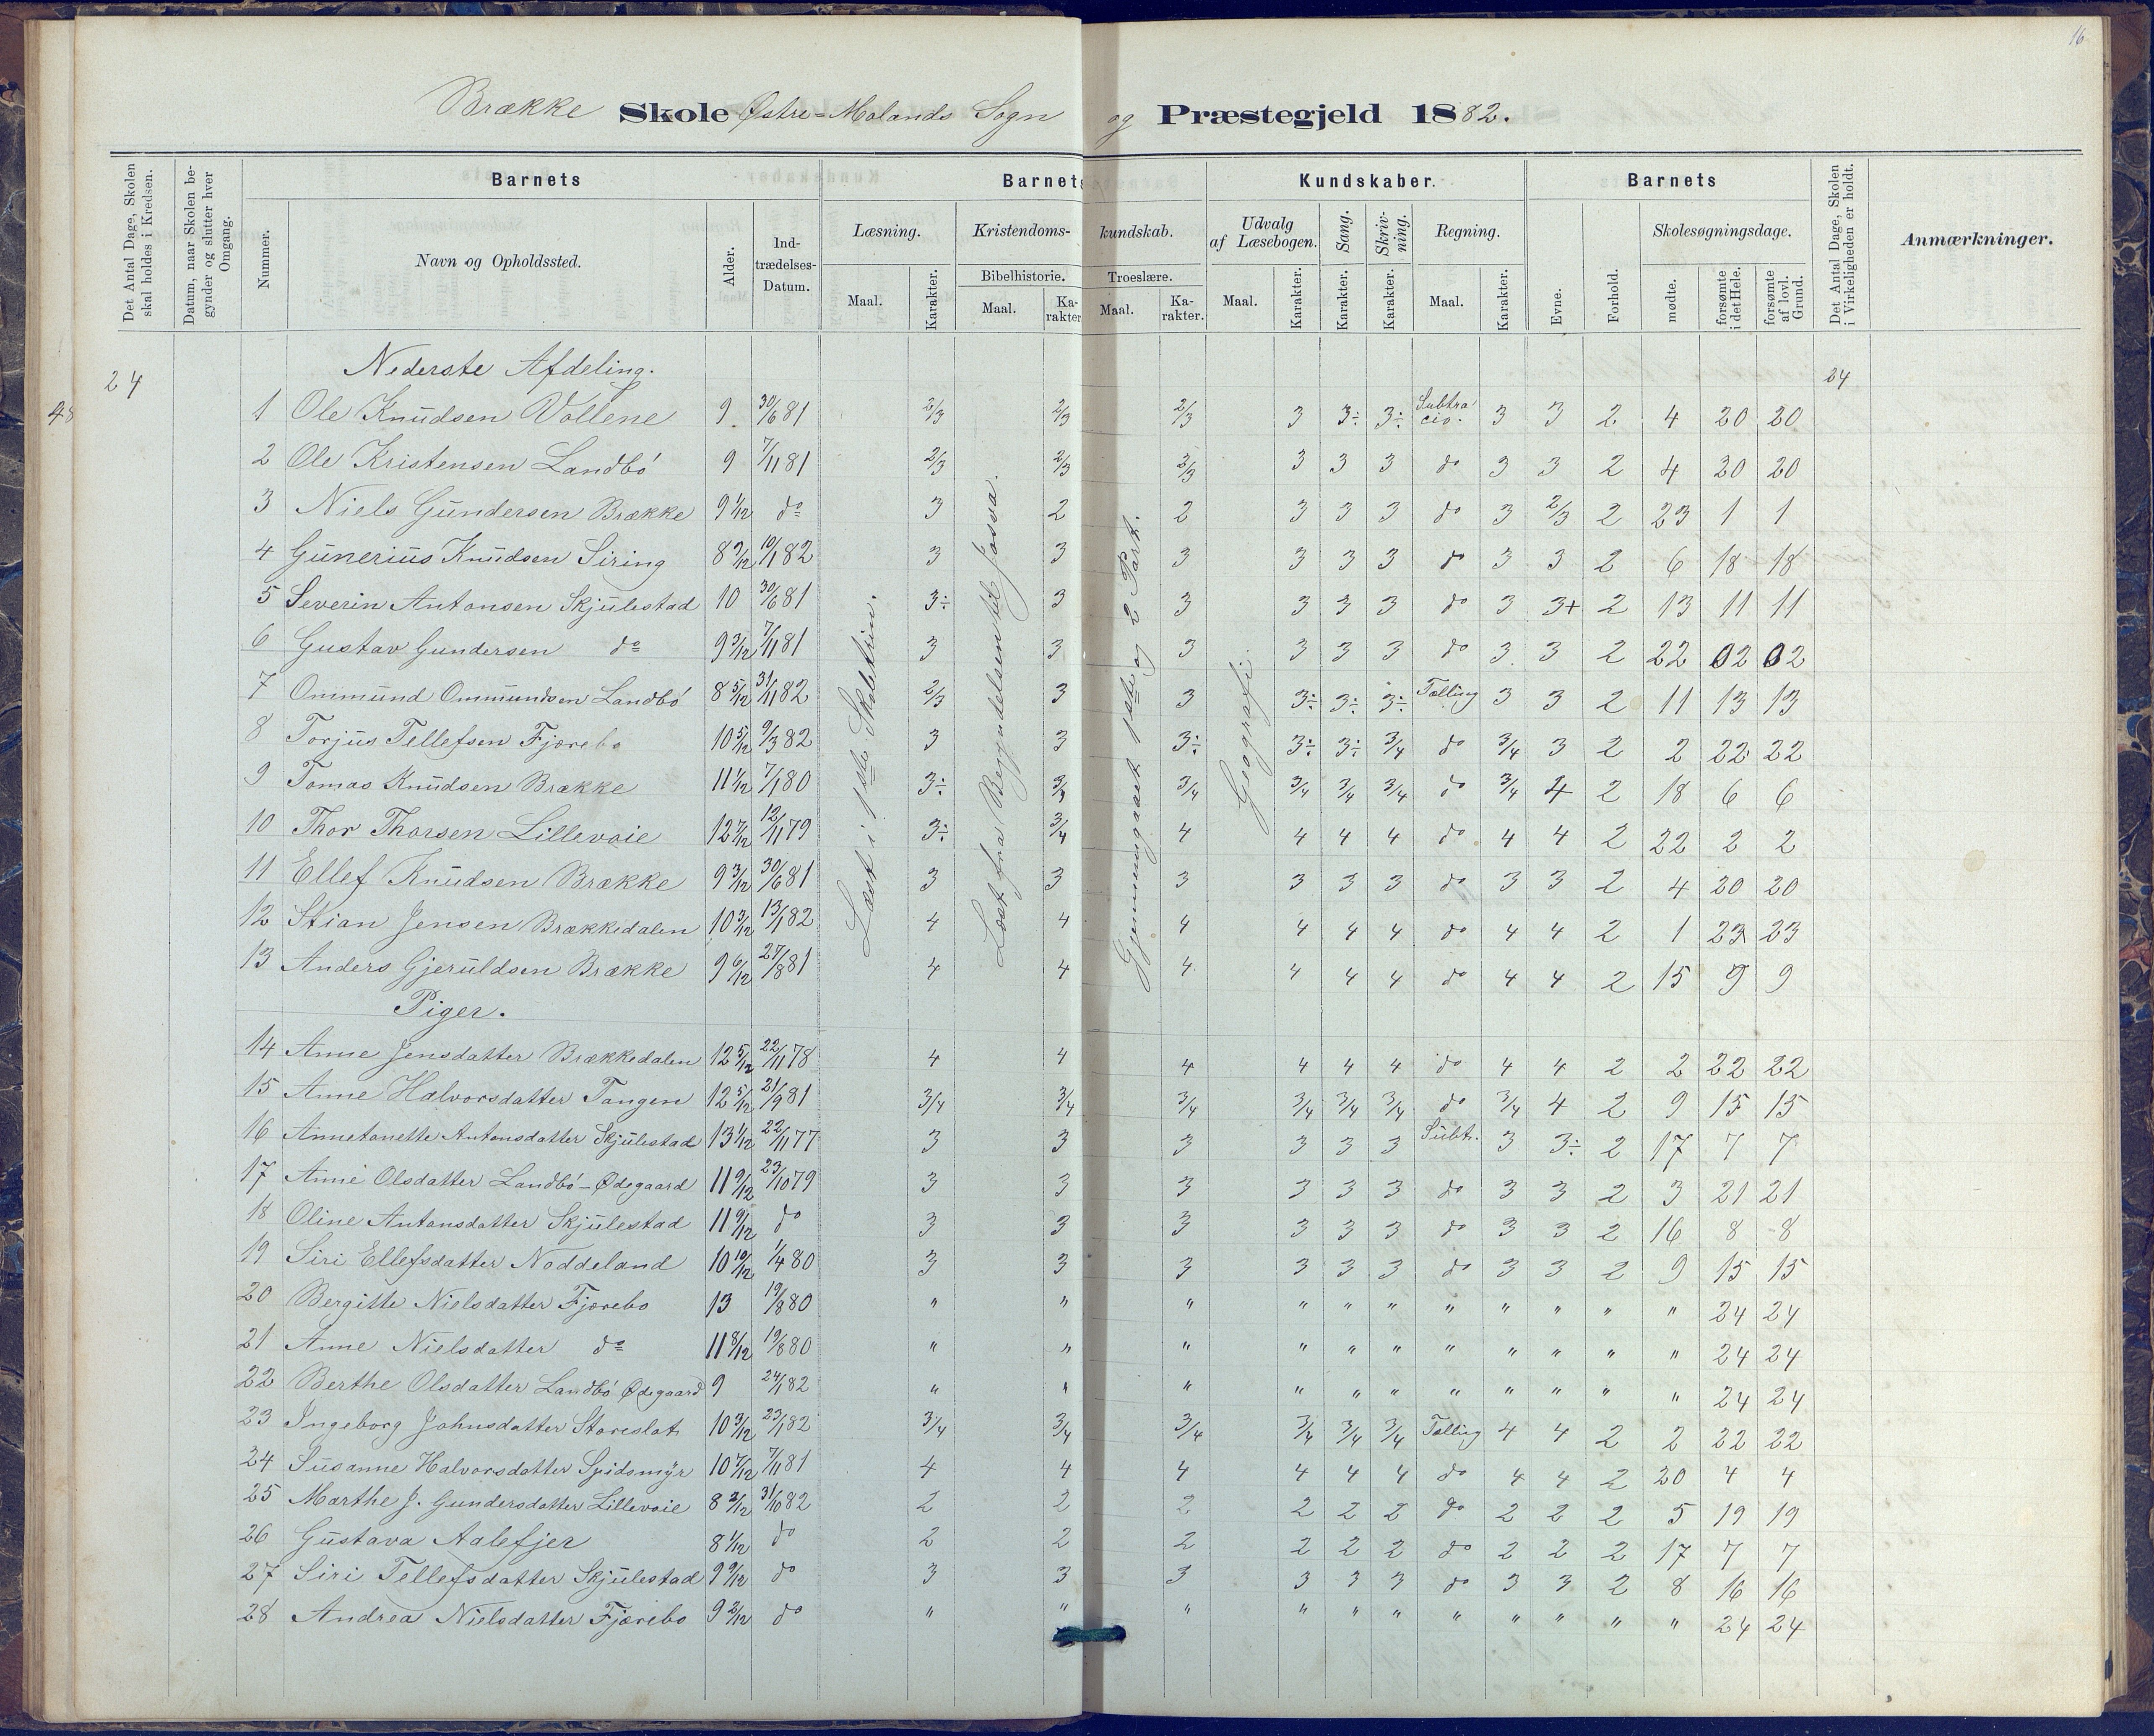 16
Brække Skole Østre-Molands Sogn og Præstegjeld 1882.
Det Antal Dage, Skolen skal holdes i Kredsen.
Datum, naar Skolen begynder og slutter hver Omgang.
Barnets
Nummer.
Navn og Opholdssted.
Alder.
Ind-
trædelses-
Datum.
Barnets Kundskaber.
Læsning.
Maal.
Karakter.
Kristendoms-kundskab.
Bibelhistorie.
Maal.
Ka-
rakter.
Troeslære.
Maal.
Ka-
rakter.
Udvalg
af Læsebogen.
Maal.
Karakter.
Sang.
Karakter.
Skriv-
ning.
Karakter.
Regning.
Maal.
Karakter.
Barnets
Evne.
Forhold.
Skolesøgningsdage.
mødte.
forsømte
i det Hele.
forsømte
af lovl.
Grund.
Det Antal Dage, Skolen
i Virkeligheden er holdt.
Anmærkninger.
48
24 Nederste Afdeling. 24
Læst i 1ste Skoletrin.
Læst fra Begyndelsen til Josva.
Gjennemgaaet 1ste og 2 Part.
Geografi.
1 Ole Knudsen Vollene 9 30/6 81 2/3 2/3 2/3 3 3÷ 3÷ Subtracio. 3 3 2 4 20 20
2 Ole Kristensen Landbö 9 7/11 81 2/3 2/3 2/3 3 3 3 do 3 3 2 4 20 20
3 Niels Gundersen Brække 9 1/12 do 3 2 2 3 3 3 do 3 2/3 2 23 1 1
4 Gunerius Knudsen Siring 8 9/12 10/1 82 3 3 3 3 3 3 do 3 3 2 6 18 18
5 Severin Antonsen Skjulestad 10 30/6 81 3÷ 3 3 3 3 3 do 3 3+ 2 13 11 11
6 Gustav Gundersen do 9 3/12 7/11 81 3 3 3 3 3 3 do 3 3 2 22 02 02
7 Ommund Ommundsen Landbö 8 5/12 31/1 82 2/3 3 3 3÷ 3÷ 3÷ Tælling 3 3 2 11 13 13
8 Torjus Tellefsen Fjærebo 10 5/12 9/3 82 3 3 3÷ 3÷ 3÷ 3/4 do 3/4 3 2 2 22 22
9 Tomas Knudsen Brække 11 1/12 7/1 80 3÷ 3/4 3/4 3/4 3/4 do 3/4 4 2 18 6 6
10 Thor Thorsen Lillevaie 12 7/12 12/11 79 3÷ 3/4 4 4 4 4 do 4 4 2 22 2 2
11 Ellef Knudsen Brække 9 3/12 30/6 81 3 3 3 3 3 3 do 3 3 2 4 20 20
12 Stian Jensen Brækkedalen 10 3/12 13/1 82 4 4 4 4 4 4 do 4 4 2 1 23 23
13 Anders Gjeruldsen Brække 9 6/12 27/8 81 4 4 4 4 4 4 do 4 4 2 15 9 9
Piger.
14 Anne Jensdatter Brækkedalen 12 5/12 22/11 78 4 4 4 4 4 4 do 4 4 2 2 22 22
15 Anne Halvorsdatter Tangen 12 5/12 21/9 81 3/4 3/4 3/4 3/4 3/4 3/4 do 3/4 4 2 9 15 15
16 Annetonette Antonsdatter Skjulestad 13 1/12 22/11 77 3 3 3 3 3 3 Subt. 3 3÷ 2 17 7 7
17 Anne Olsdatter Landbö-Ødegaard 11 9/12 23/10 79 3 3 3 3 3 3 do 3 3 2 3 21 21
18 Oline Antonsdatter Skjulestad 11 9/12 do 3 3 3 3 3 3 do 3 3 2 16 8 8
19 Siri Ellefsdatter Noddeland 10 10/12 1/4 80 3 3 3 3 3 3 do 3 3 2 9 15 15
20 Bergitte Nielsdatter Fjærebo 13 19/8 80 " " " " " " " " " " " 24 24
21 Anne Nielsdatter do 11 8/12 19/8 80 " " " " " " " " " " " 24 24
22 Berthe Olsdatter Landbö Ødegaard 9 24/1 82 " " " " " " " " " " " 24 24
23 Ingeborg Johnsdatter Storeslot 10 3/12 23/1 82 3/4 3/4 3/4 3/4 3/4 3/4 Tælling 4 4 2 2 22 22
24 Susanne Halvorsdatter Spidsmyr 10 7/12 7/11 81 4 4 4 4 4 4 do 4 4 2 20 4 4
25 Marthe J. Gundersdatter Lillevaie 8 2/12 31/10 82 2 2 2 2 2 2 do 2 2 2 5 19 19
26 Gustava Aalefjer 8 1/12 do 2 2 2 2 2 2 do 2 2 2 17 7 7
27 Siri Tellefsdatter Skjulestad 9 9/12 do 3 3 3 3 3 3 do 3 3 2 8 16 16
28 Andrea Nielsdatter Fjærebo 9 2/12 do " " " " " " " " " " " 24 24